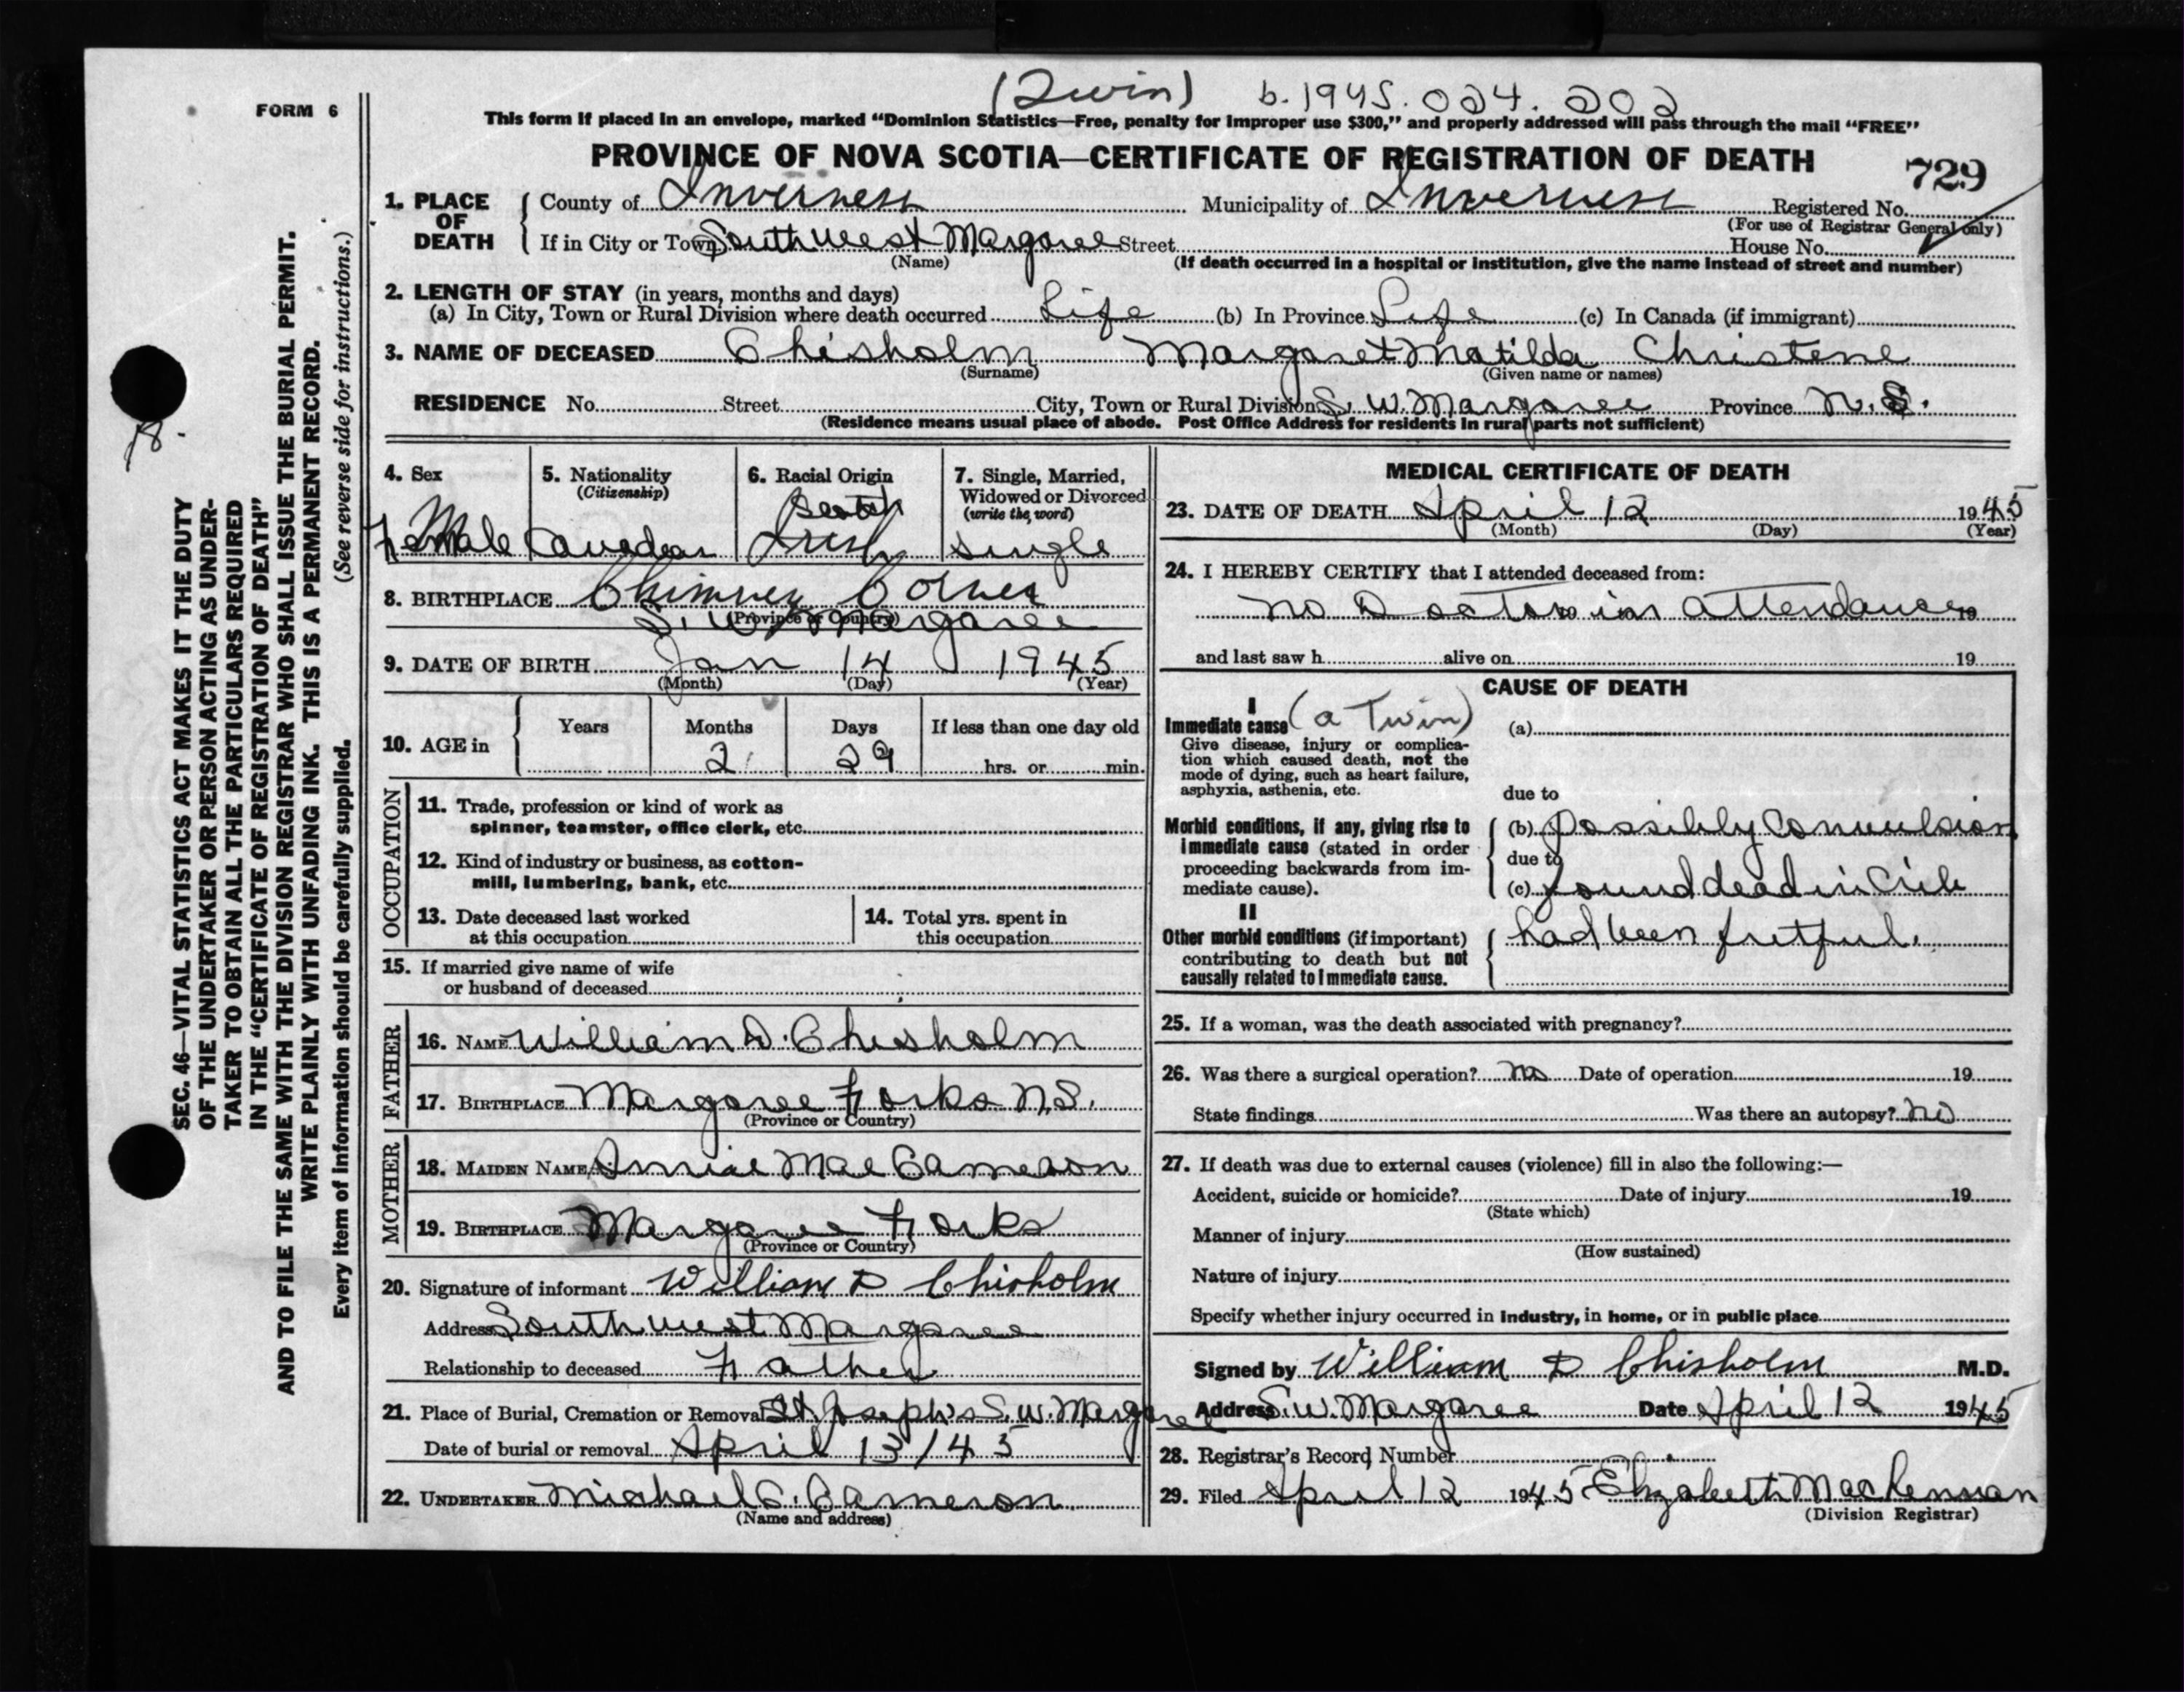 (Twin) b. 1945. 024. 202
FORM 6
This form if placed in an envelope, marked “Dominion Statistics—Free, penalty for improper use $300,” and properly addressed will pass through the mail “FREE”
PROVINCE OF NOVA SCOTIA—CERTIFICATE OF REGISTRATION OF DEATH
729
1. PLACE OF DEATH
County of Inverness Municipality of Inverness Registered No.
(For use of Registrar General only)
If in City or Town Southwest Margaree Street House No.
(Name) (If death occurred in a hospital or institution, give the name instead of street and number)
2. LENGTH OF STAY (in years, months and days)
(a) In City, Town or Rural Division where death occurred Life (b) In Province Life (c) In Canada (if immigrant)
3. NAME OF DECEASED Chisholm Margaret Matilda Christene
(Surname) (Given name or names)
RESIDENCE No. Street City, Town or Rural Division S. W. Margaree Province N.S.
(Residence means usual place of abode. Post Office Address for residents in rural parts not sufficient)
4. Sex
Female
5. Nationality
(Citizenship)
Canadian
6. Racial Origin
Scotch
Irish
7. Single, Married,
Widowed or Divorced
(write the word)
single
8. BIRTHPLACE Chimney Corner
S. W. Margaree
(Province or Country)
9. DATE OF BIRTH Jan 14 1945
(Month) (Day) (Year)
10. AGE in
Years Months Days If less than one day old
2 29 hrs. or min.
OCCUPATION
11. Trade, profession or kind of work as
spinner, teamster, office clerk, etc.
12. Kind of industry or business, as cotton-
mill, lumbering, bank, etc.
13. Date deceased last worked
at this occupation
14. Total yrs. spent in
this occupation
15. If married give name of wife
or husband of deceased
FATHER
16. NAME William D. Chisholm
17. BIRTHPLACE Margaree Forks N.S.
(Province or Country)
MOTHER
18. MAIDEN NAME Annie Mae Cameron
19. BIRTHPLACE Margaree Forks
(Province or Country)
20. Signature of informant William D Chisholm
Address Southwest Margaree
Relationship to deceased Father
21. Place of Burial, Cremation or Removal St Joseph's S. W. Margaree
Date of burial or removal April 13/45
22. UNDERTAKER Michael S. Cameron
(Name and address)
MEDICAL CERTIFICATE OF DEATH
23. DATE OF DEATH April 12 1945
(Month) (Day) (Year)
24. I HEREBY CERTIFY that I attended deceased from:
no Doctor in attendance 19
and last saw h alive on 19
CAUSE OF DEATH
I
Immediate cause (a Twin) (a)
Give disease, injury or complica-
tion which caused death, not the
mode of dying, such as heart failure,
asphyxia, asthenia, etc.
due to
Morbid conditions, if any, giving rise to
immediate cause (stated in order
proceeding backwards from im-
mediate cause).
(b) Possibly Convulsion
due to
(c) found dead in Crib
II
Other morbid conditions (if important)
contributing to death but not
causally related to immediate cause.
had been fretful.
25. If a woman, was the death associated with pregnancy?
26. Was there a surgical operation? No Date of operation 19
State findings Was there an autopsy? No
27. If death was due to external causes (violence) fill in also the following:—
Accident, suicide or homicide? Date of injury 19
(State which)
Manner of injury
(How sustained)
Nature of injury
Specify whether injury occurred in industry, in home, or in public place
Signed by William D Chisholm M.D.
Address S. W. Margaree Date April 12 1945
28. Registrar's Record Number
29. Filed April 12 1945 Elizabeth MacLennan
(Division Registrar)
SEC. 46—VITAL STATISTICS ACT MAKES IT THE DUTY
OF THE UNDERTAKER OR PERSON ACTING AS UNDER-
TAKER TO OBTAIN ALL THE PARTICULARS REQUIRED
IN THE “CERTIFICATE OF REGISTRATION OF DEATH”
AND TO FILE THE SAME WITH THE DIVISION REGISTRAR WHO SHALL ISSUE THE BURIAL PERMIT.
WRITE PLAINLY WITH UNFADING INK. THIS IS A PERMANENT RECORD.
Every item of information should be carefully supplied. (See reverse side for instructions.)